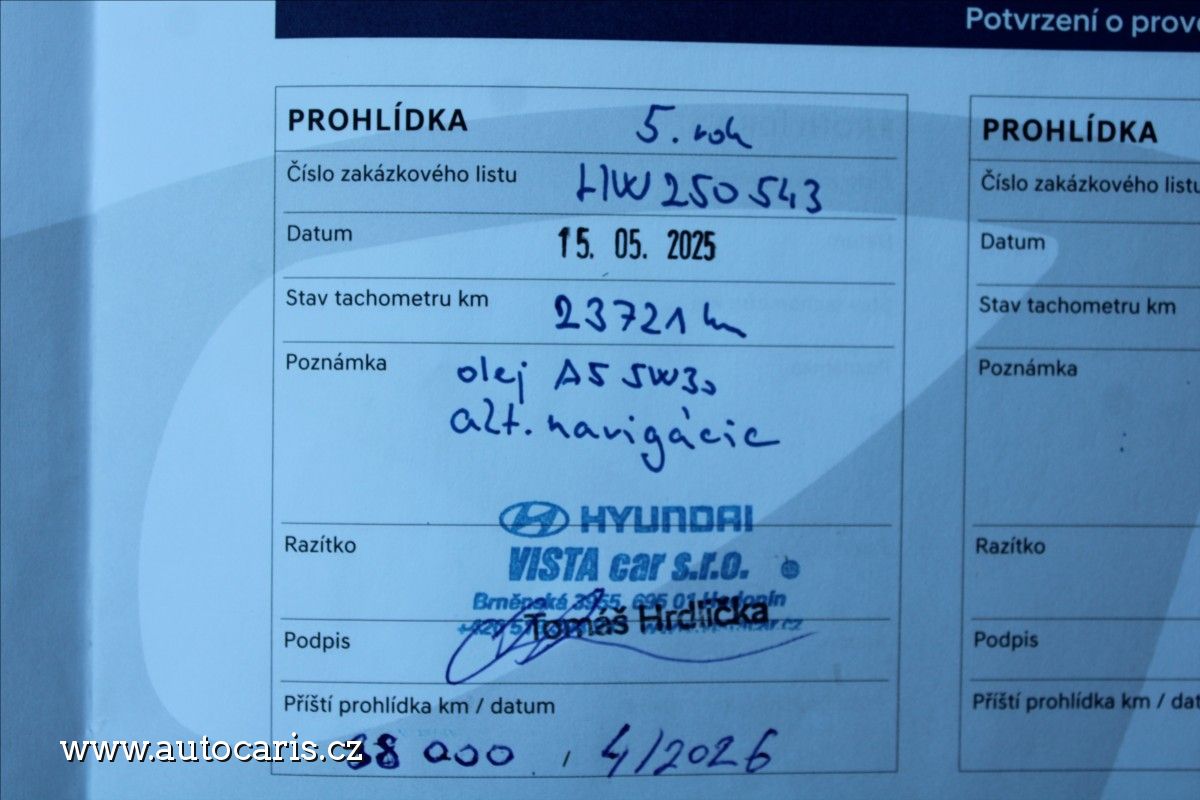 Potvrzení o prov
PROHLÍDKA 5. rok
Číslo zakázkového listu HW250543
Datum 15. 05. 2025
Stav tachometru km 23721 km
Poznámka olej A5 5W30
azt. navigácie
Razítko HYUNDAI
VISTA car s.r.o.
Brněnská 3955, 695 01 Hodonín
Tomáš Hrdlička
Podpis
Příští prohlídka km / datum
38 000 , 4/2026
PROHLÍDKA
Číslo zakázkového listu
Datum
Stav tachometru km
Poznámka
Razítko
Podpis
Příští prohlídka km / dat
www.autocaris.cz